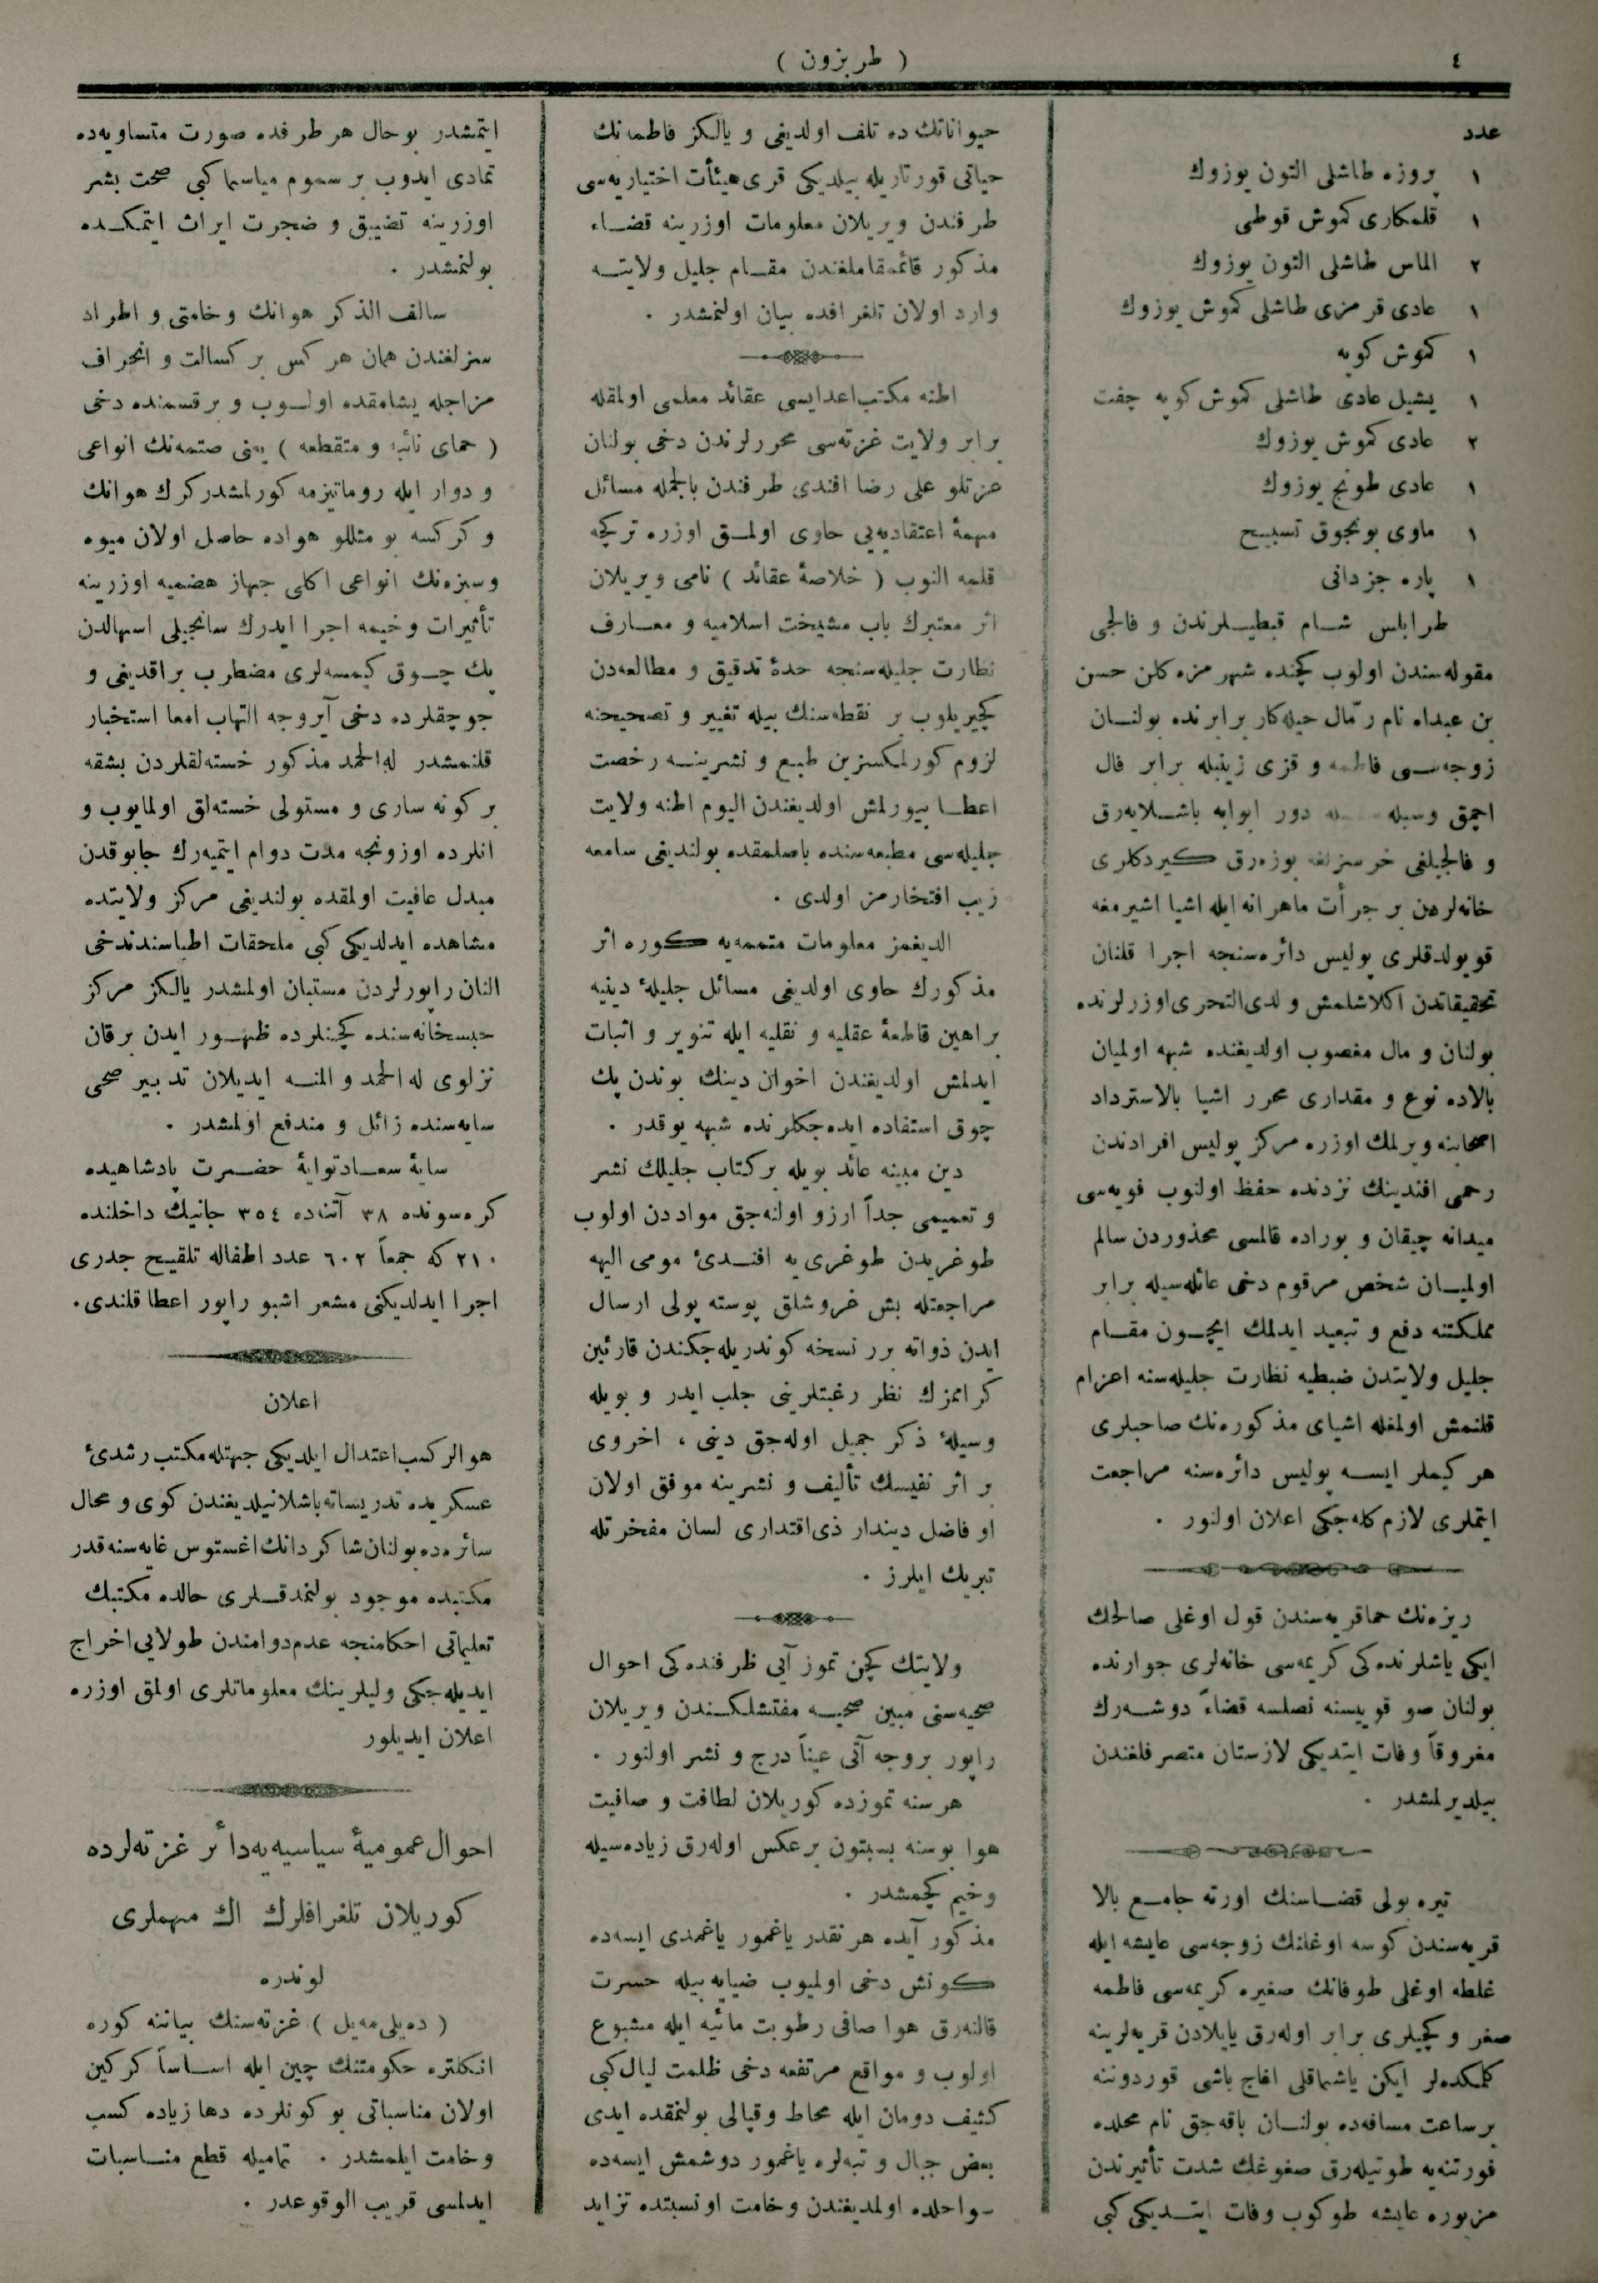 ٤
( طربزون )
عدد
١ پروزه طاشلی التون یوزوك
١ قلمکاری کموش قوطی
٢ الماس طاشلی التون یوزوك
١ عادی قرمزی طاشلی کموش یوزوك
١ کموش کوپه
١ یشیل عادی طاشلی کموش کوپه چفت
٢ عادی کموش یوزوك
١ عادی طونج یوزوك
١ ماوی بونجوق تسبیح
١ پاره جزدانی
طرابلس شام قبطیلرندن و فالجی
مقوله‌سندن اولوب کچنده شهرمزه کلن حسن
بن عبداه نام رمّال حیله‌کار برابرنده بولنان
زوجه‌سی فاطمه و قزی زینبله برابر فال
اچمق وسیله دور ابوابه باشلایه‌رق
و فالجیلغی خرسزلغه بوزه‌رق کیردکلری
خانه‌لردن بر جرأت ماهرانه ایله اشیا اشیرمغه
قویولدقلری پولیس دائره‌سنجه اجرا قلنان
تحقیقاتدن اکلاشلمش ولدی‌التحری اوزرلرنده
بولنان و مال مغصوب اولدیغنده شبهه اولمیان
بالاده نوع و مقداری محرر اشیا بالاسترداد
اصحابنه ویرلمك اوزره مرکز پولیس افرادندن
رحمی افندینك نزدنده حفظ اولنوب فویه‌سی
میدانه چیقان و بوراده قالمسی محذوردن سالم
اولمیان شخص مرقوم دخی عائله‌سیله برابر
مملکتنه دفع و تبعید ایدلمك ایچون مقام
جلیل ولایتدن ضبطیه نظارت جلیله‌سنه اعزام
قلنمش اولمغله اشیای مذکوره‌نك صاحبلری
هر کیملر ایسه پولیس دائره‌سنه مراجعت
ایتملری لازم کله‌جکی اعلان اولنور .
ریزه‌نك حماقریه‌سندن قول اوغلی صالحك
ایکی یاشلرنده‌کی کریمه‌سی خانه‌لری جوارنده
بولنان صو قوییسنه نصلسه قضاءً دوشه‌رك
مغروقاً وفات ایتدیکی لازستان متصرفلغندن
بیلدیرلمشدر .
تیره‌بولی قضاسنك اورته جامع بالا
قریه‌سندن کوسه اوغلنك زوجه‌سی عایشه ایله
غلطه اوغلی طوفانك صغیره کریمه‌سی فاطمه
صغر و کچیلری برابر اوله‌رق یایلادن قریه‌لرینه
کلمکده‌لر ایکن یاشماقلی اغاج باشی قوردوننه
بر ساعت مسافه‌ده بولنان باقه‌جق نام محلده
فورتنه‌یه طوتیله‌رق صغوغك شدت تأثیرندن
مزبوره عایشه طوکوب وفات ایتدیکی کبی
حیواناتك ده تلف اولدیغی و یالکز فاطمه‌نك
حیاتی قورتاریله بیلدیکی قری هیئات اختیاریه‌سی
طرفندن ویریلان معلومات اوزرینه قضاء
مذکور قائمقاملغندن مقام جلیل ولایته
وارد اولان تلغرافده بیان اولنمشدر .
اطنه مکتب اعدایسی عقائد معلمی اولمقله
برابر ولایت غزته‌سی محررلرندن دخی بولنان
عزتلو علی رضا افندی طرفندن بالجمله مسائل
مهمهٔ اعتقادیه‌یی حاوی اولمق اوزره ترکچه
قلمه النوب ( خلاصهٔ عقائد ) نامی ویریلان
اثر معتبرك باب مشیخت اسلامیه و معارف
نظارت جلیله‌سنجه حدهٔ تدقیق و مطالعه‌دن
کچیریلوب بر نقطه‌سنك بیله تغییر و تصحیحنه
لزوم کورلمکسزین طبع و نشرینه رخصت
اعطا بیورلمش اولدیغندن الیوم اطنه ولایت
جلیله‌سی مطبعه‌سنده باصلمقده بولندیغی سامعه
زیب افتخارمز اولدی .
الدیغمز معلومات متممه‌یه کوره اثر
مذکورك حاوی اولدیغی مسائل جلیلهٔ دینیه
براهین قاطعهٔ عقلیه و نقلیه ایله تنویر و اثبات
ایدلمش اولدیغندن اخوان دینك بوندن پك
چوق استفاده ایده‌جکلرنده شبهه یوقدر .
دین مبینه عائد بویله بر کتاب جلیلك نشر
و تعمیمی جداً ارزو اولنه‌جق موادن اولوب
طوغریدن طوغری‌یه افندئ مومی الیهه
مراجعتله بش غروشلق پوسته پولی ارسال
ایدن ذواته برر نسخه کوندریله‌جکندن قارئین
کرامزك نظر رغبتلرینی جلب ایدر و بویله
وسیلهٔ ذکر جمیل اوله‌جق دینی ، اخروی
بر اثر نفیسك تألیف و نشرینه موفق اولان
او فاضل دیندار ذی‌اقتداری لسان مفخرتله
تبریك ایلرز .
ولایتك کچن تموز آیی ظرفنده‌کی احوال
صحیه‌سنی مبین صحیه مفتشلکندن ویریلان
راپور بروجه آتی عیناً درج و نشر اولنور .
هر سنه تموزده کوریلان لطافت و صافیت
هوا بوسنه بسبتون بر عکس اوله‌رق زیاده‌سیله
وخیم کچمشدر .
مذکور آیده هر نقدر یاغمور یاغمدی ایسه‌ده
کونش دخی اولمیوب ضیایه بیله حسرت
قالنه‌رق هوا صافی رطوبت مائیه ایله مشبوع
اولوب و مواقع مرتفعه دخی ظلمت لیال کبی
کثیف دومان ایله محاط و قپالی بولنمقده ایدی
بعض جبال و تپه‌لره یاغمور دوشمش ایسه‌ده
سواحلده اولمدیغندن وخامت اونسبتده تزاید
ایتمشدر بوحال هر طرفده صورت متساویه‌ده
تمادی ایدوب بر سموم میاسما کبی صحت بشر
اوزرینه تضییق و ضجرت ایراث ایتمکده
بولنمشدر .
سالف الذکر هوانك وخامتی و اطراد
سزلغندن همان هر کس بر کسالت و انحراف
مزاجله یشامقده اولوب و بر قسمنده دخی
( حمای نائبه و متقطعه ) یعنی صتمه‌نك انواعی
و دوار ایله روماتیزمه کورلمشدر کرك هوانك
و کرکسه بو مثللو هواده حاصل اولان میوه
وسبزه‌نك انواعی اکلی جهاز هضمیه اوزرینه
تأثیرات وخیمه اجرا ایدرك سانجیلی اسهالدن
پك چوق کیمسه‌لری مضطرب براقدیغی و
چوجقلرده دخی آیروجه التهاب امعا استخبار
قلنمشدر له‌الحمد مذکور خسته‌لقلردن بشقه
بر کونه ساری و مستولی خسته‌لق اولمایوب و
انلرده اوزونجه مدت دوام ایتمیه‌رك چابوقدن
مبدل عافیت اولمقده بولندیغی مرکز ولایتده
مشاهده ایدلدیکی کبی ملحقات اطباسندن‌دخی
النان راپورلردن مستبان اولمشدر یالکز مرکز
حبسخانه‌سنده کچنلرده ظهور ایدن بر قان
نزلوی له الحمد و المنه ایدیلان تدبیر صحی
سایه‌سنده زائل و مندفع اولمشدر .
سایهٔ سعادتوایهٔ حضرت پادشاهیده
کره‌سونده ٣٨ آتنه‌ده ٣٥٤ جانیك داخلنده
٢١٠ که جمعاً ٦٠٢ عدد اطفاله تلقیح جدری
اجرا ایدلدیکنی مشعر اشبو راپور اعطا قلندی.
اعلان
هوالر کسب اعتدال ایلدیکی جهتله مکتب رشدئ
عسکریده تدریساته باشلانیلدیغندن کوی و محال
سائره‌ده بولنان شاکردانك اغستوس غایه‌سنه قدر
مکتبده موجود بولنمدقلری حالده مکتبك
تعلیماتی احکامنجه عدم دوامندن طولایی اخراج
ایدیله‌جکی ولیلرینك معلوماتلری اولمق اوزره
اعلان ایدیلور
احوال عمومیهٔ سیاسیه‌یه دائر غزته‌لرده
کوریلان تلغرافلرك اك مهملری
لوندره
( ده‌یلی مه‌یل ) غزته‌سنك بیاننه کوره
انکلتره حکومتنك چین ایله اساساً کرکین
اولان مناسباتی بو کونلرده دها زیاده کسب
وخامت ایلمشدر . تمامیله قطع مناسبات
ایدلمسی قریب الوقوعدر .